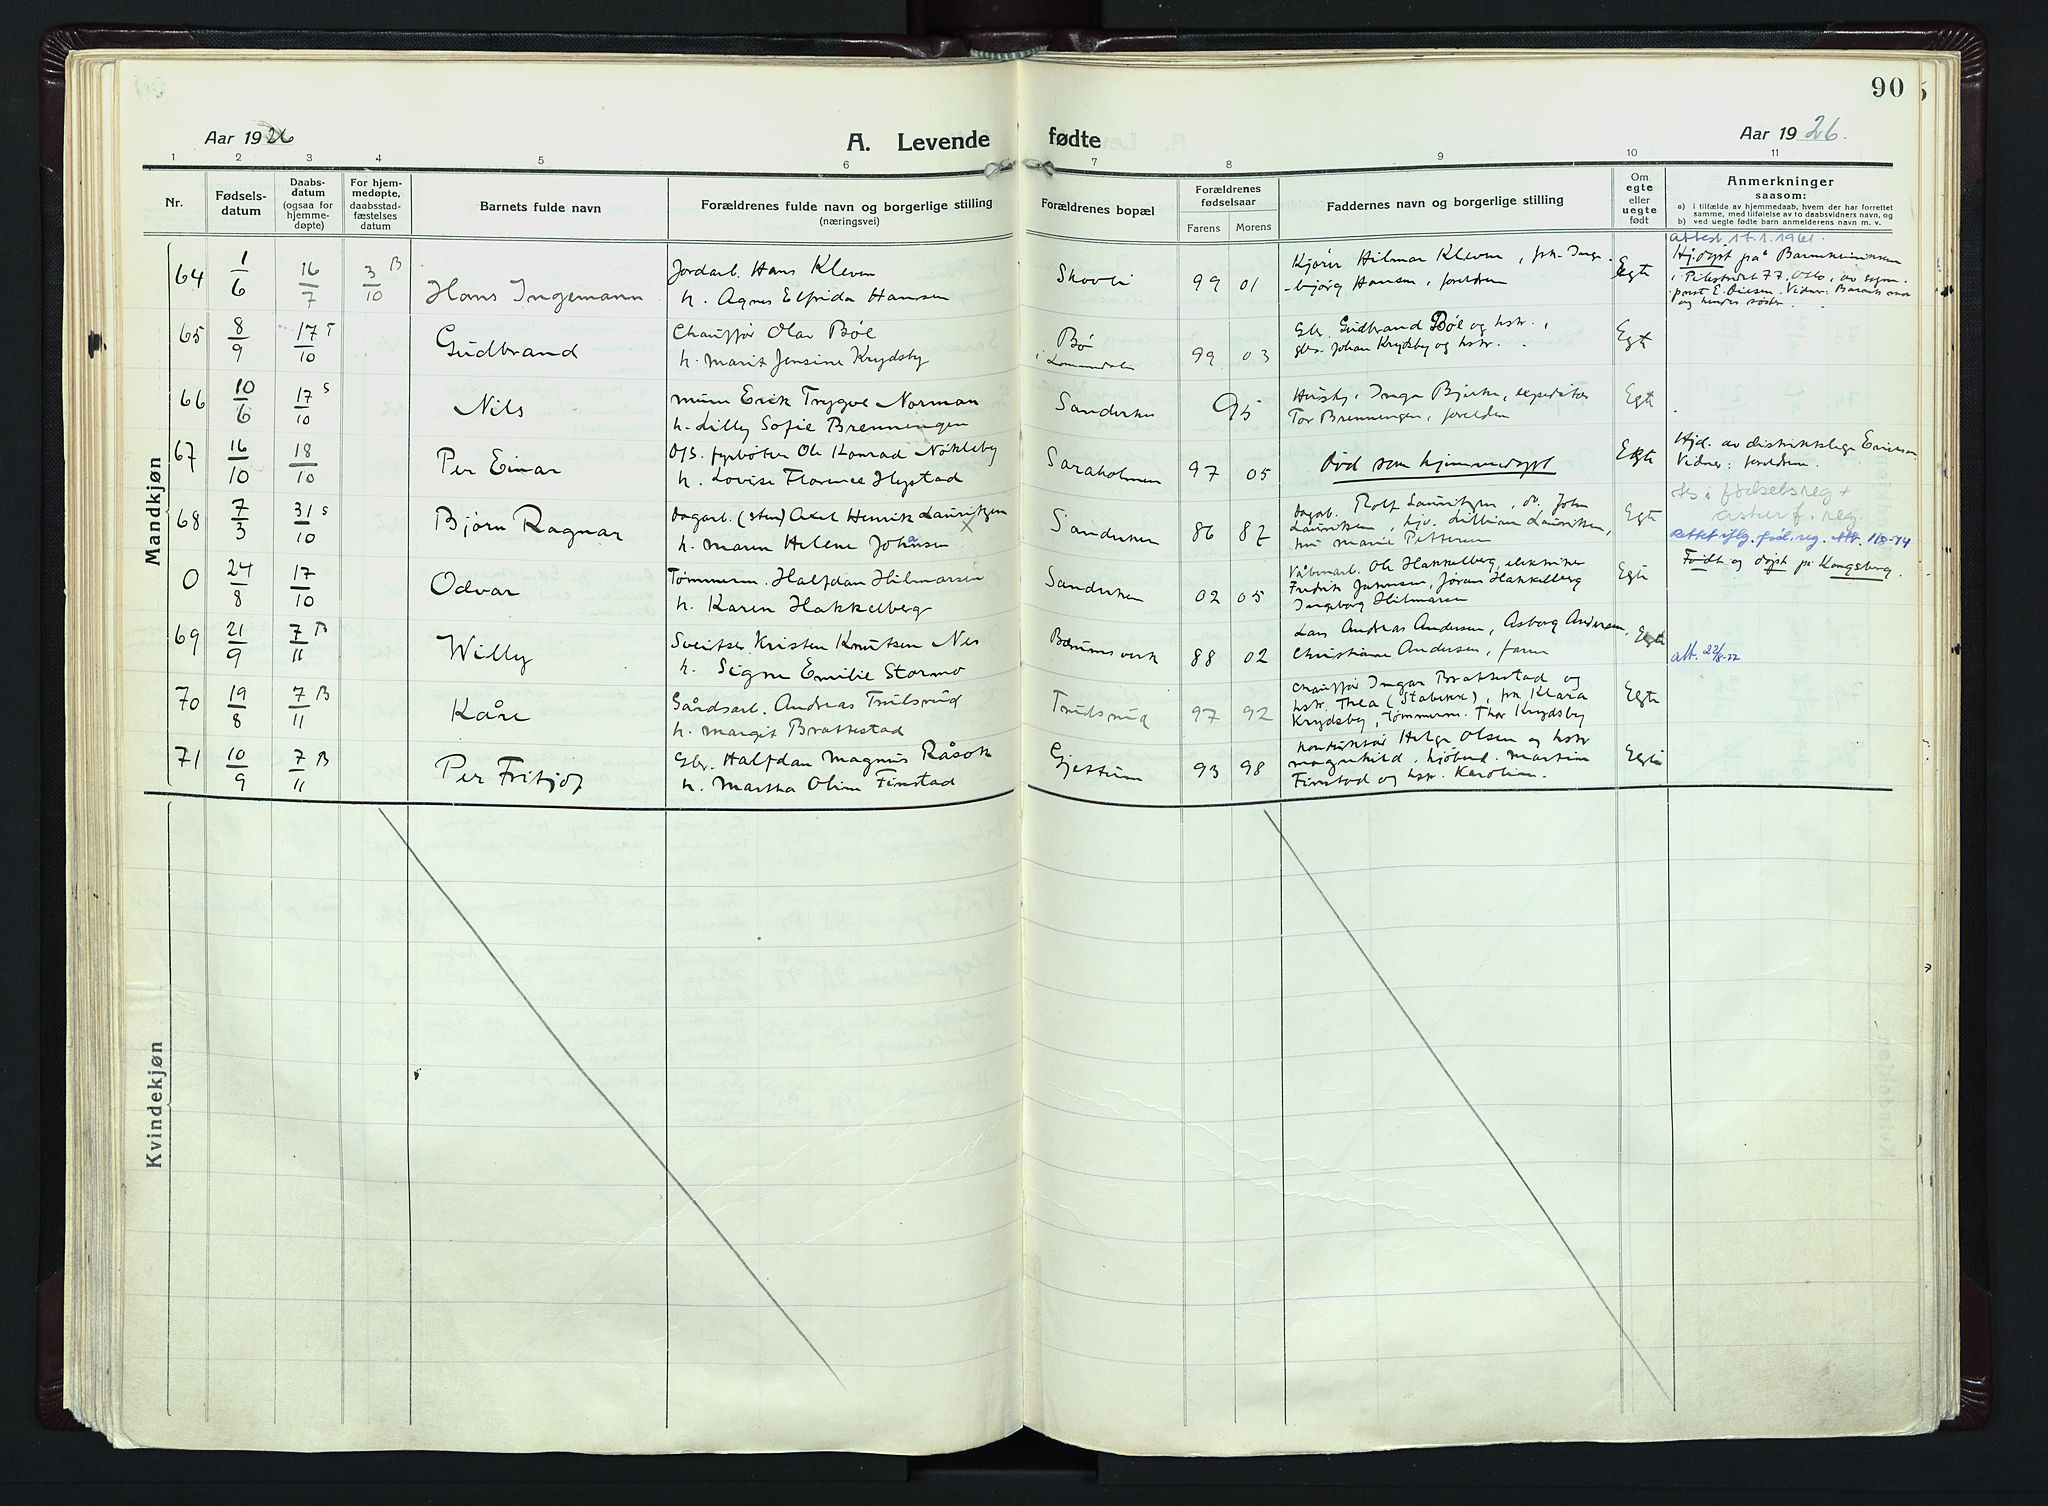 90
Aar 1926
A. Levende
fødte
Aar 1926.
1 2 3 4 5 6 7 8 9 10 11
Nr.
Fødsels-
datum
Daabs-
datum
(ogsaa for
hjemme-
døpte)
For hjem-
medøpte,
daabsstad-
fæstelses
datum
Barnets fulde navn
Forældrenes fulde navn og borgerlige stilling
(næringsvei)
Forældrenes bopæl
Forældrenes
fødselsaar
Farens Morens
Faddernes navn og borgerlige stilling
Om
egte
eller
uegte
født
Anmerkninger
saasom:
a) i tilfælde av hjemmedaab, hvem der har forrettet
samme, med tilføielse av to daabsvidners navn, og
b) ved uegte født barn anmelderens navn m. v.
Mandkjøn
attest. 17.1.1961.
64 1/6 16/7 3/10 B Hans Ingemann
Jordarb. Hans Kleven
h. Agnes Elfrida Hansen
Skovli 99 01
Hilmar Kleven, frk. Inge-
-bjørg Hansen, foreldrene
Egte
Hj.døpt på
i Pilestredet 77, Oslo, av
prest E. Vidner: Barnets
og hendes søster.
65 8/9 17/10 T Gudbrand
Chauffør Olav Bøe
h. Marit Jensine Krydsby
Bø
i Lommedalen
99 03
Gbr. Gudbrand Bøe og hstr.,
gbr. Johan Krydsby og hstr.
Egte
66 10/6 17/10 S Nils
murer Erik Trygve Norman
h. Lilly Sofie Brenningen
Sandviken 95
Inga Bjerke, expeditør
Tor Brenningen, foreldrene
Egte
67 16/10 18/10 Per Einar
fyrbøter Ole Konrad Nøkleby
h. Lovise Florence Hystad
Saraholmen 97 05
Død som hjemmedøpt
Egte
Hjd. av distriktslæge
Vidner: foreldrene.
68 7/3 31/10 S Bjørn Ragnar
Dagarb. (sten) Axel Henrik Lauritzen
h. Maren Helene Johansen
Sandviken 86 87
Dagarb. Rolf Lauritzen, do. John
Lauritzen, Lillian Lauritzen,
Marie Pettersen
Egte
fødselsreg +
reg.
Rettet iflg. føds.reg. 118-74
0 24/8 17/10 Odvar
Tømmerm. Halfdan Hilmarsen
h. Karen Hakkelberg
Sandviken 02 05
Ole Hakkelberg, elektriker
Fredrik Johnsen, Jøran Hakkelberg
Ingeborg Hilmarsen
Egte
Født og døpt på Kongsberg.
69 21/9 7/11 B Willy
Sveitser Kristen Knutsen Nes
h. Signe Emilie Stormo
Bærums verk 88 02
Lars Andreas Andersen, Asborg Andersen,
Christiane Andersen, faren
Egte
att. 22/8-77
70 19/8 7/11 B Kåre
Gårdsarb. Andreas Trulsrud
h. Margit Brattestad
Trulsrud 97 92
Chauffør Ingar Brattestad og
hstr. Thea (Stabekk), frk. Klara
Krydsby, tømmerm. Thor Krydsby
Egte
71 10/9 7/11 B Per Fritjof
Gbr. Halfdan Magnus Råsok
h. Martha Oline Finstad
Gjettum 93 98
Konduktør Helge Olsen og hstr.
Magnhild, kjøbmd. Martin
Finstad og hstr. Karoline.
Egte
Kvindekjøn